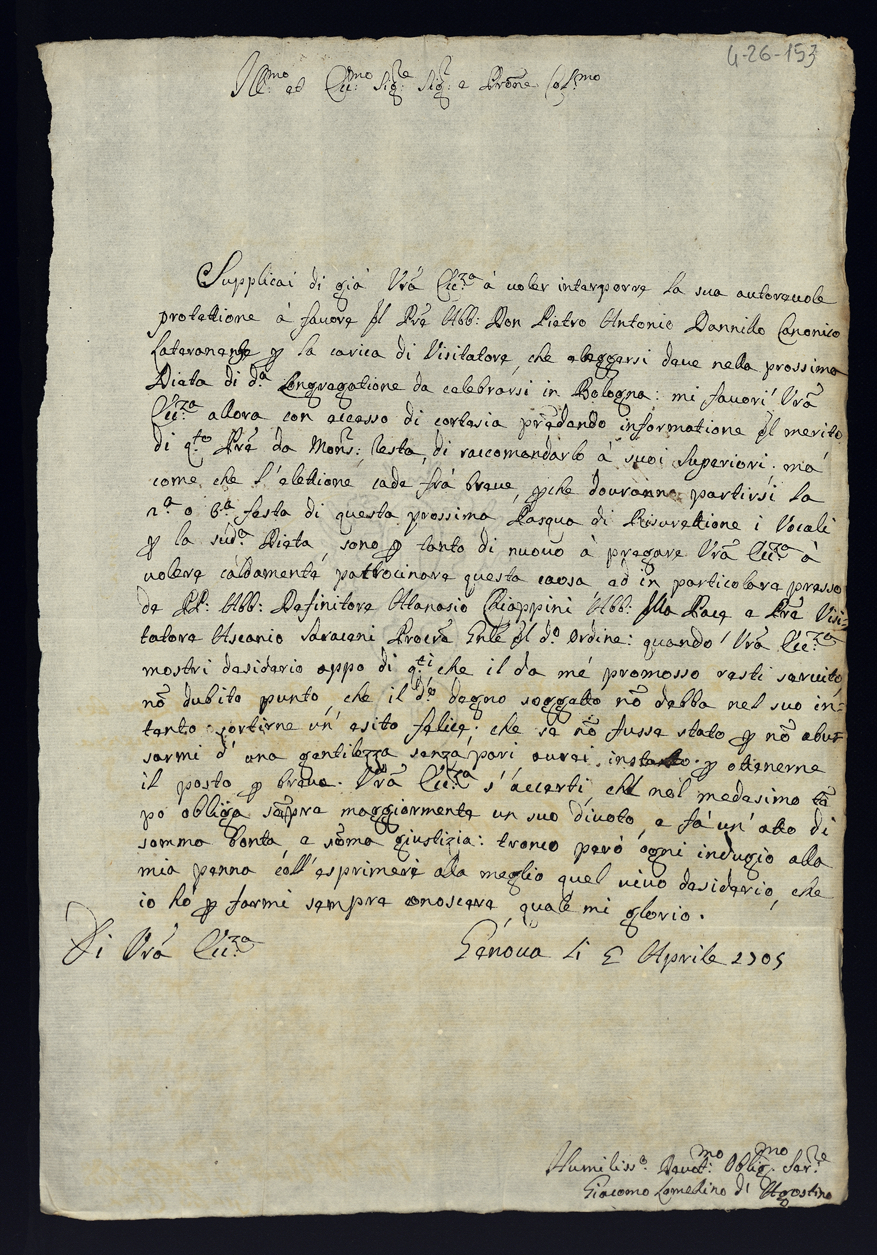 4-26-153
Ill.mo ed Ecc.mo Sig.re Sig.r e Prõne Col.mo
Supplicai di già Vrã Ecc.za à voler interporre la sua autorevole
protettione à favore del Prẽ Abb: Don Pietro Antonio Dannillo Canonico
Lateranense p la carica di Visitatore, che eleggersi deve nella prossima
Dieta di d.a Congregatione da celebrarsi in Bologna: mi favorì Vrã
Ecc.za allora con eccesso di cortesia prẽdendo informatione del merito
di q.to Prẽ da Mons.r Testa, di raccomandarlo à suoi Superiori: mà
come che l'elettione cade frà breve, pche dovranno partirsi la
2.a o 3.a festa di questa prossima Pasqua di Risurettione i Vocali
p la sud.a Dieta, sono p tanto di nuovo à pregare Vrã Ecc.za à
volere caldamente patrocinare questa causa ed in particolare presso
de PP: Abb: Definitore Atanasio Chiappini Abb: della Pace e Prẽ Visi-
tatore Ascanio Saraceni Procrẽ Gñle del d.o Ordine: quando Vrã Ecc.za
mostri desiderio appo di q.ti che il da me promosso resti servito,
nõ dubito punto, che il d.o degno soggetto nõ debba nel suo in-
tento sortirne un' esito felice: che se nõ fusse stato p nõ abu-
sarmi d' una gentilezza senza pari avrei p ottenerne
il posto p breve. Vrã Ecc.za s'accerti, chè nel medesimo tẽ
po obliga sẽpre maggiormente un suo divoto, e fà un' atto di
somma bontà, e sõma giustizia: tronco però ogni indugio alla
mia penna coll'esprimere alla meglio quel vivo desiderio, che
io hò p farmi sempre conoscere, quale mi glorio.
Di Vrã Ecc.za Genova li Aprile 1705
Humiliss.o Devot.mo Oblig.mo Ser.re
Giacomo Lomellino di Agostino